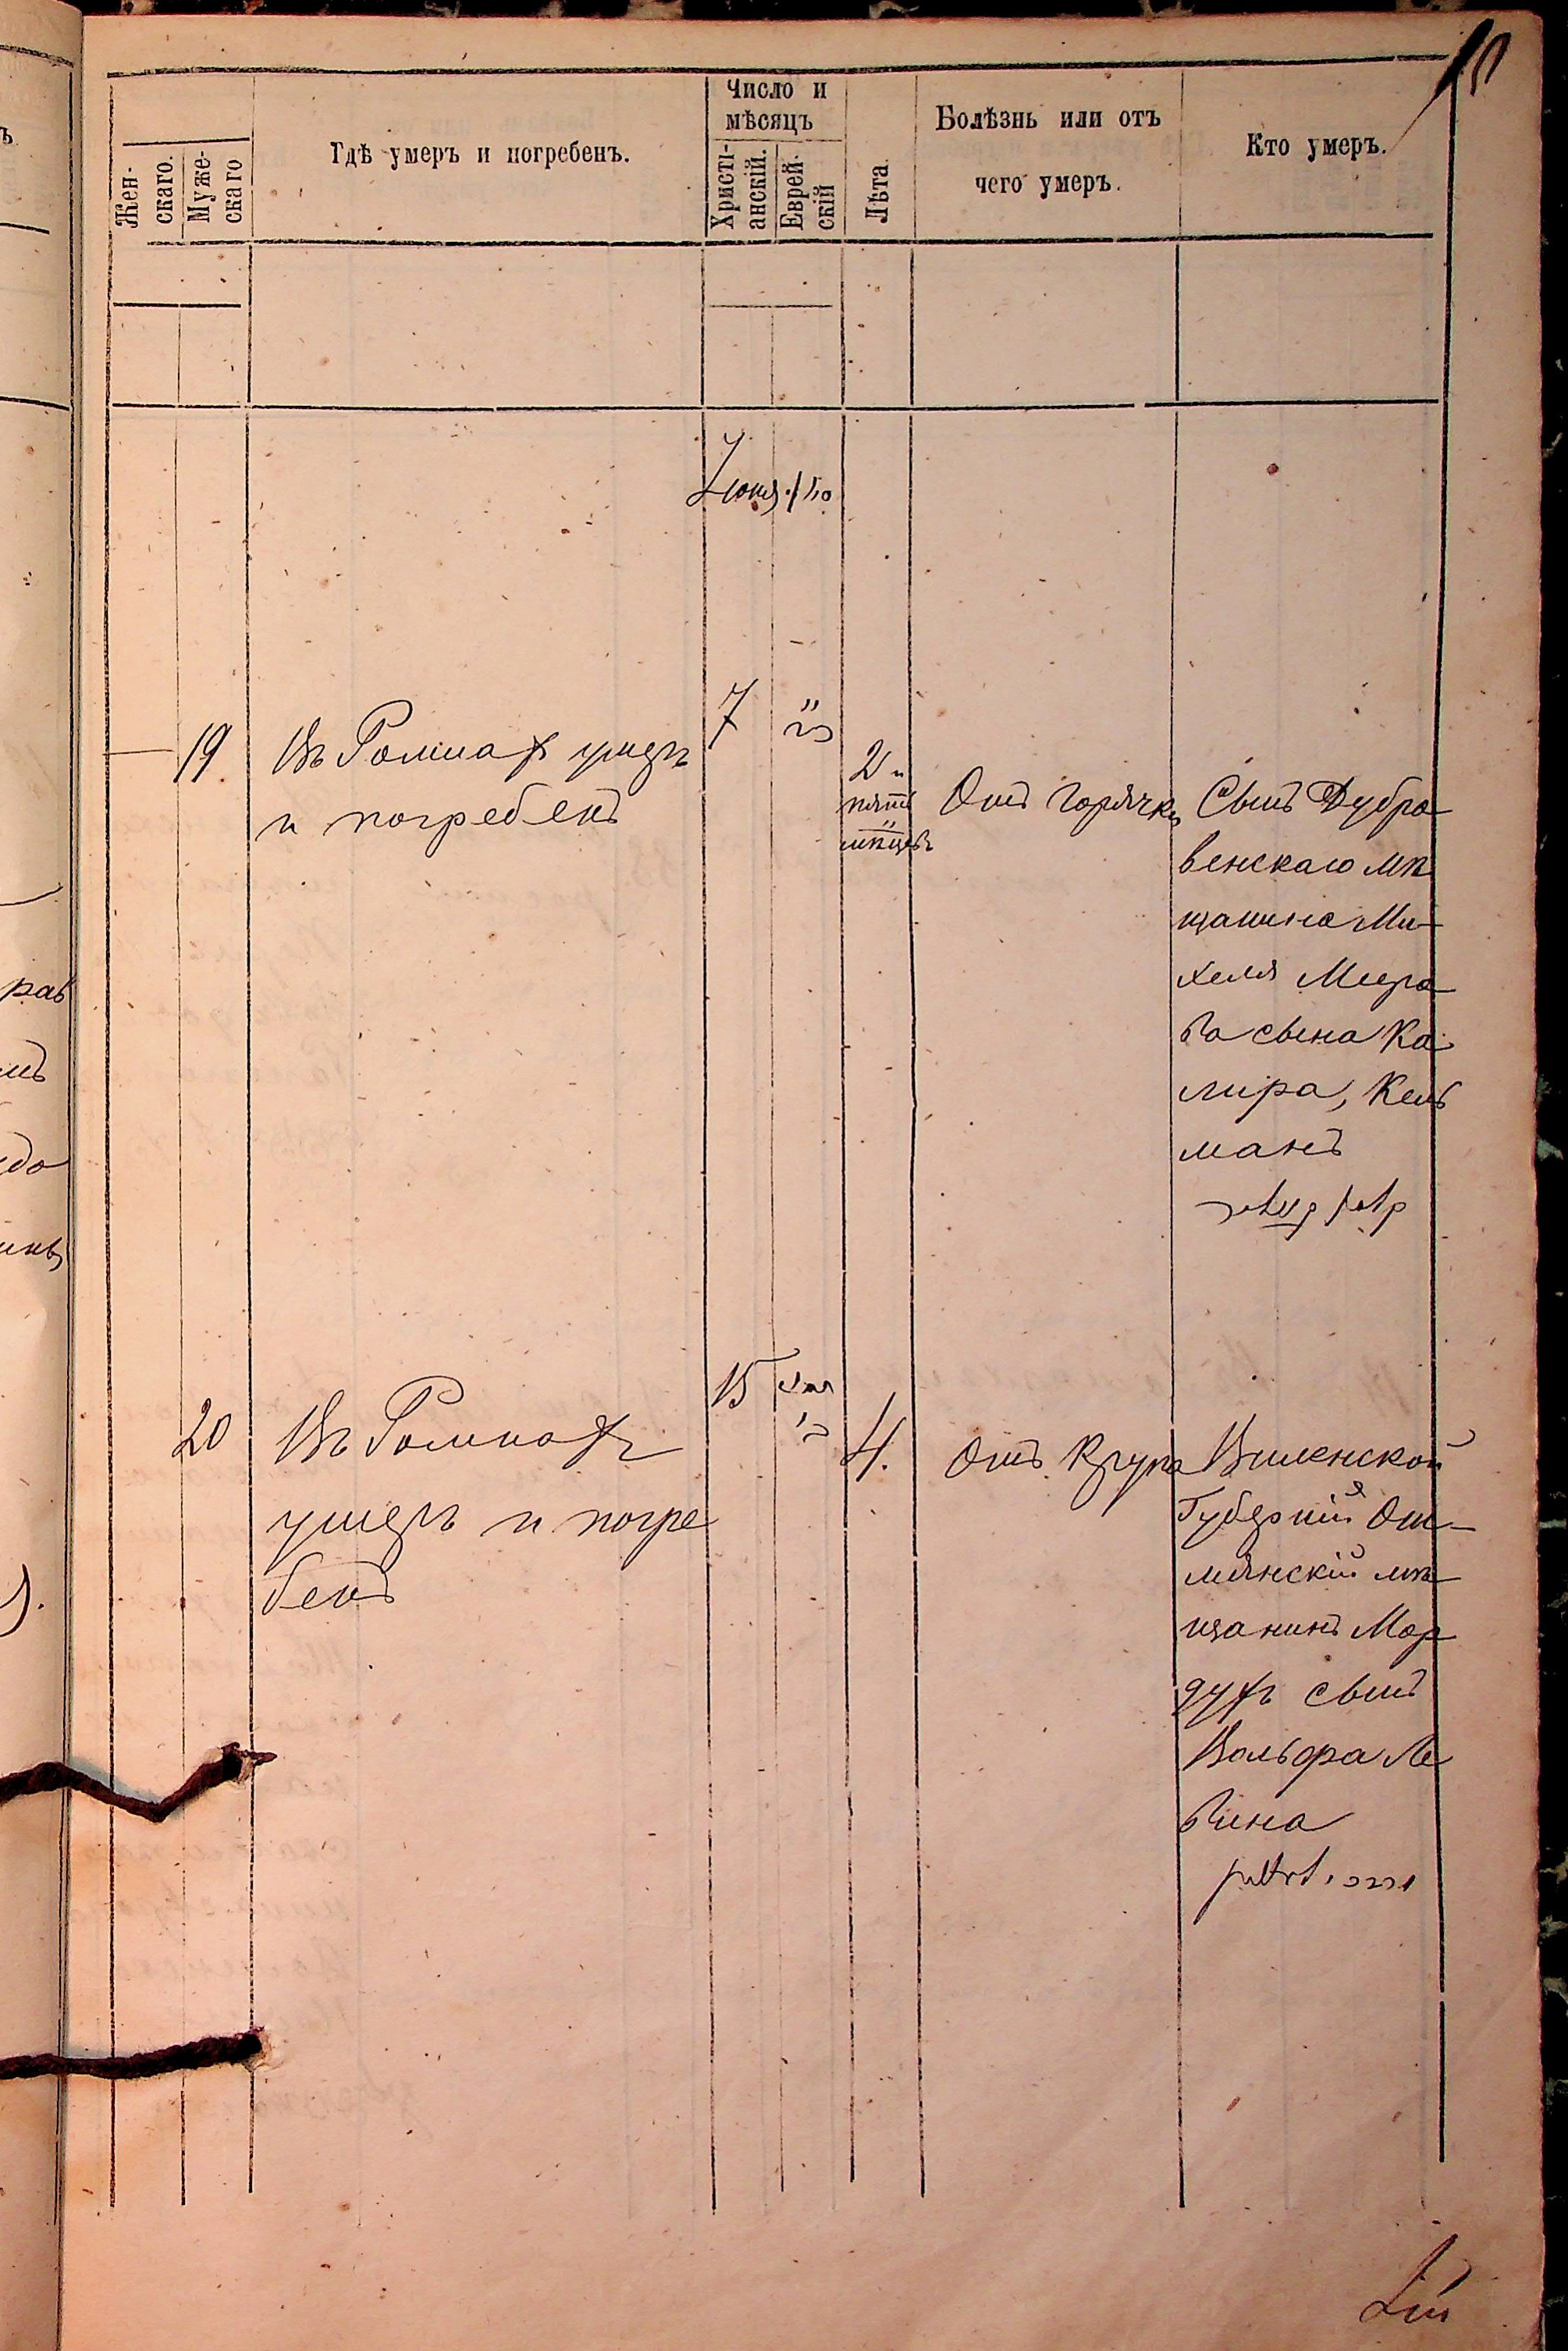 Жен-
скаго.
Муже-
скаго
Гдѣ умеръ и погребенъ.
Число и
мѣсяцъ
Христі-
анскій.
Еврей-
скій
Лѣта
Болѣзнь или отъ
чего умеръ.
Кто умеръ.
Іюня
19
Въ Ромнах умеръ
и погребенъ
7
2 и
пять
мѣсцевъ
Отъ горячки
Сынъ Дубро
венскаго мѣ
щанина Ми-
хеля Меера
ва сына Ка
лира, Кель
манъ
20
Въ Ромнахъ
умеръ и погре
бенъ
15
4.
Отъ Крупа
Виленской
Губерніи Ош-
мянскій мѣ
щанинъ Мор
духъ сынъ
Вольфа Ле
вина